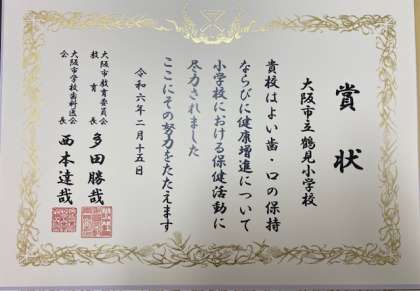 賞状
大阪市立鶴見小学校
貴校はよい歯・口の保持
ならびに健康増進について
小学校における保健活動に
尽力されました
ここにその努力をたたえます
令和六年二月十五日
大阪市教育委員会
教育長 多田勝哉
大阪市学校歯科医会
会長 西本達哉